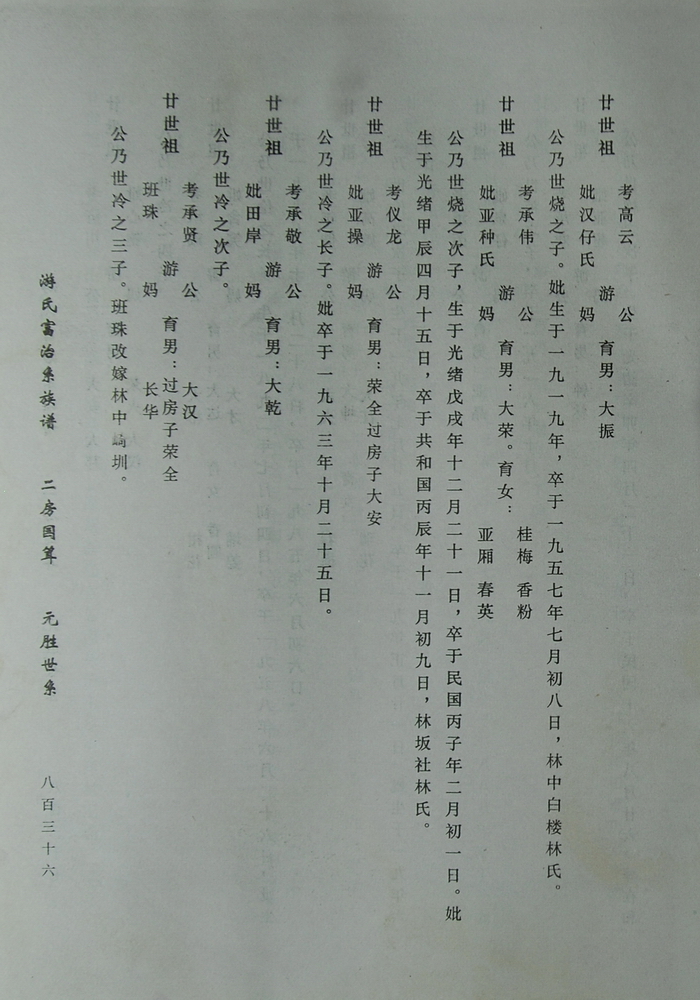 廿世祖 考高云 妣汉仔氏 游 公 妈 育男：大振
公乃世烧之子。妣生于一九一九年，卒于一九五七年七月初八日，林中白楼林氏。
廿世祖 考承伟 妣亚种氏 游 公 妈 育男：大荣。育女： 桂梅 香粉 亚厢 春英
公乃世烧之次子，生于光绪戊戌年十二月二十一日，卒于民国丙子年二月初一日。妣
生于光绪甲辰四月十五日，卒于共和国丙辰年十一月初九日，林坂社林氏。
廿世祖 考仪龙 妣亚操 游 公 妈 育男：荣全过房子大安
公乃世冷之长子。妣卒于一九六三年十月二十五日。
廿世祖 考承敬 妣田岸 游 公 妈 育男：大乾
公乃世冷之次子。
廿世祖 考承贤 班珠 游 公 妈 育男：过房子荣全 大汉 长华
公乃世冷之三子。班珠改嫁林中圳。
游氏富治系族谱 二房国算 元胜世系 八百三十六